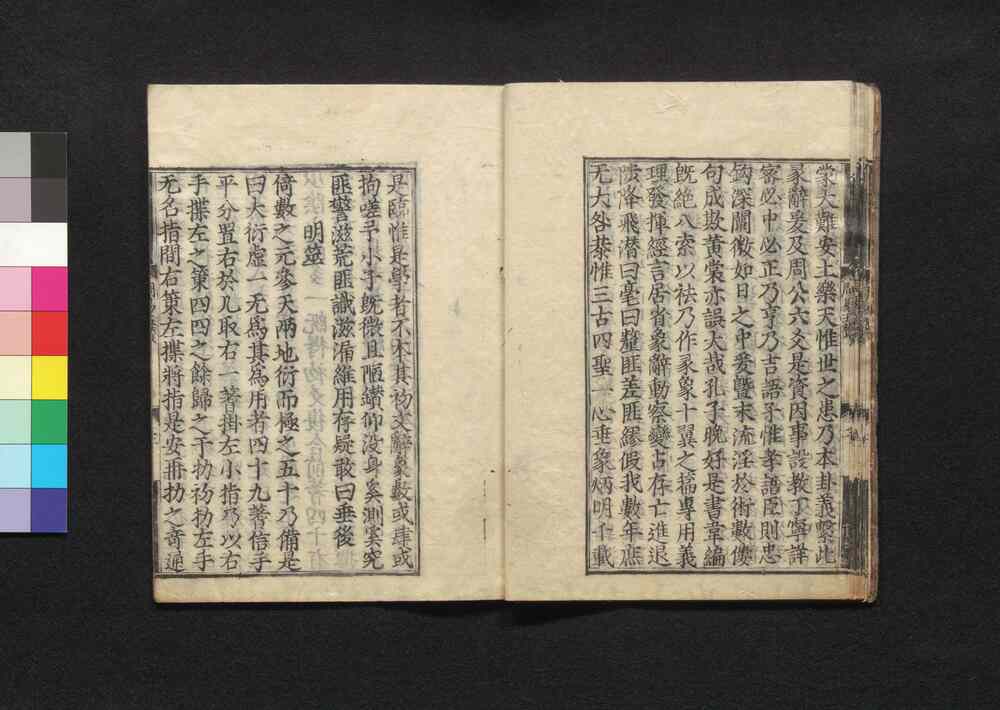 蒙大難安土樂天惟世之患乃本卦義繫此
彖辭爰及周公六爻是資因事設教丁寧詳
密必中必正乃亨乃吉語子惟孝語臣則忠
鉤深闡微如日之中爰曁末流淫於術數僂
句成欺黃裳亦誤大哉孔子晚好是書韋編
旣絶八索以祛乃作彖象十翼之篇專用義
理發揮經言居省象辭動察變占存亡進退
陟降飛潛曰毫曰釐匪差匪繆假我數年庶
无大咎恭惟三古四聖一心垂象炳明千載
是臨惟是學者不本其初文辭象數或肆或
拘嗟予小子旣微且陋鑽仰没身奚測奚究
匪警滋荒匪識滋漏維用存疑敢曰垂後
明筮
倚數之元參天兩地衍而極之五十乃備是
曰大衍虛一无爲其爲用者四十九蓍信手
平分置右於几取右一蓍掛左小指乃以右
手揲左之策四四之餘歸之于扐初扐左手
无名指間右策左揲將指是安再扐之奇通